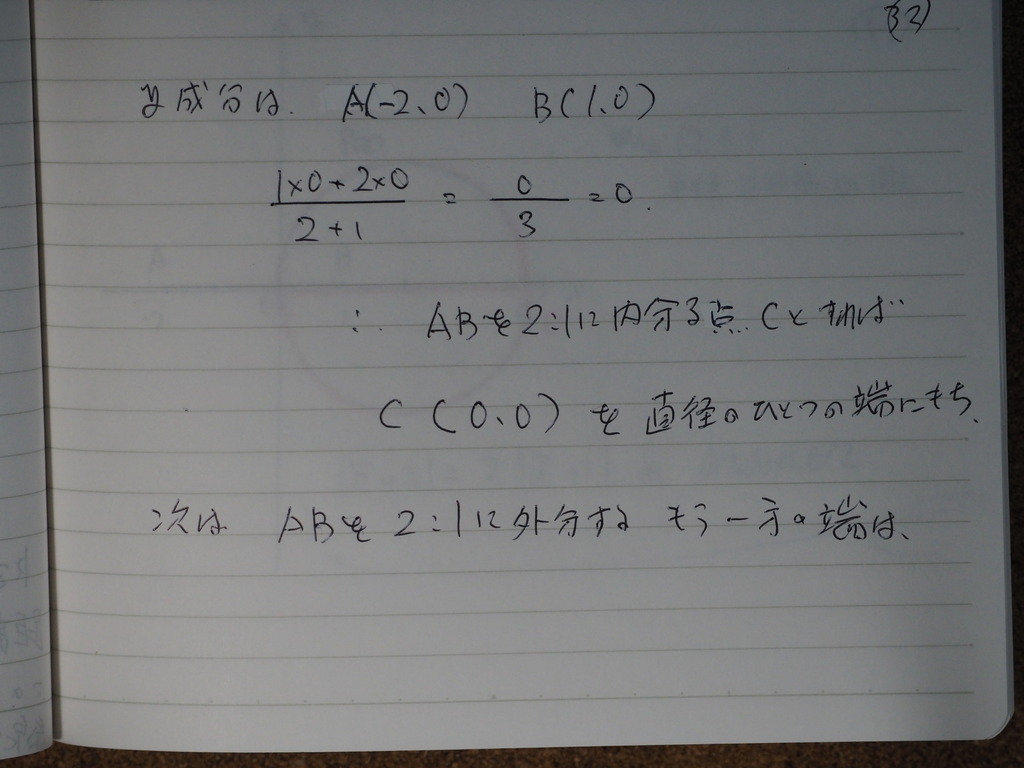 y成分は. A(-2、0) B(1、0)
(1×0+2×0)/(2+1) = 0/3 = 0.
∴ ABを2:1に内分る点Cとすれば
C(0、0)を直径のひとつの端にもち、
次は ABを2:1に外分する もう一方の端は、